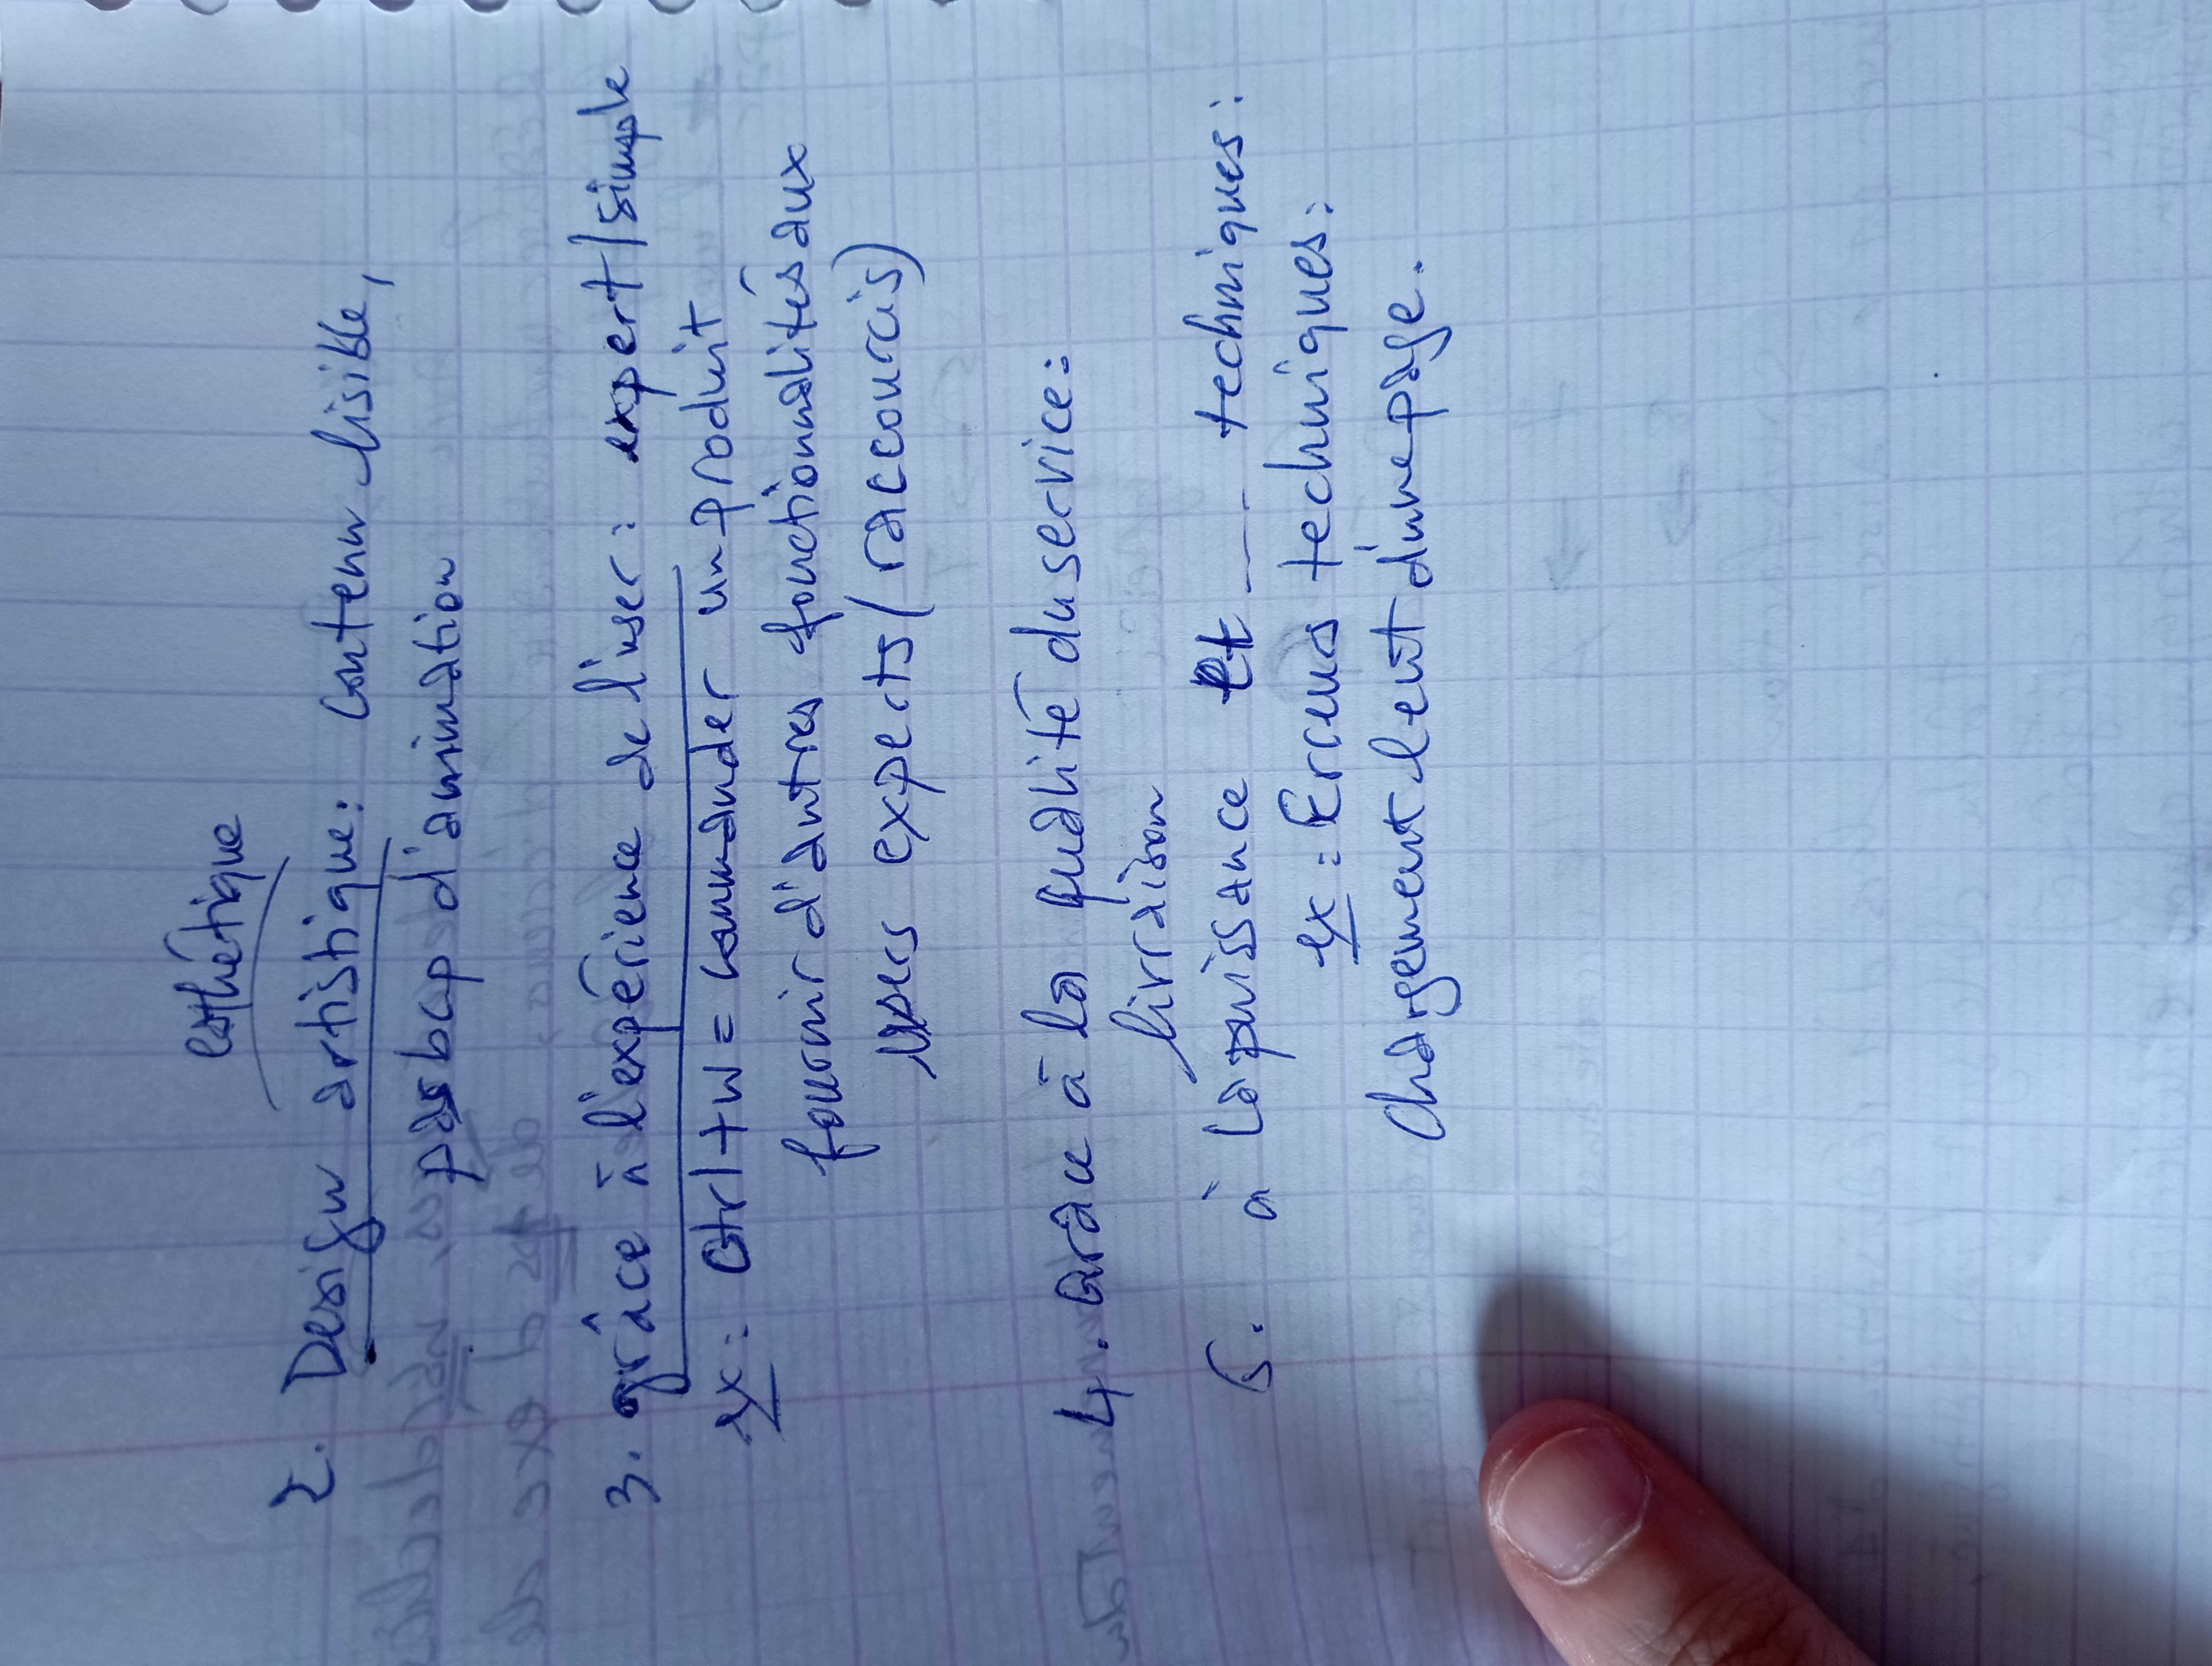 esthétique
2. Design artistique: contenu lisible,
pas bcp d'animation
3. grâce à l'expérience de l'user: expert/simple
ex: Ctrl+W = commander un produit
fournir d'autres fonctionnalités aux
users experts (raccourcis)
4. Grâce à la qualité du service:
livraison
5. à la puissance et --- techniques:
ex: Erreurs techniques:
Chargement lent d'une page.